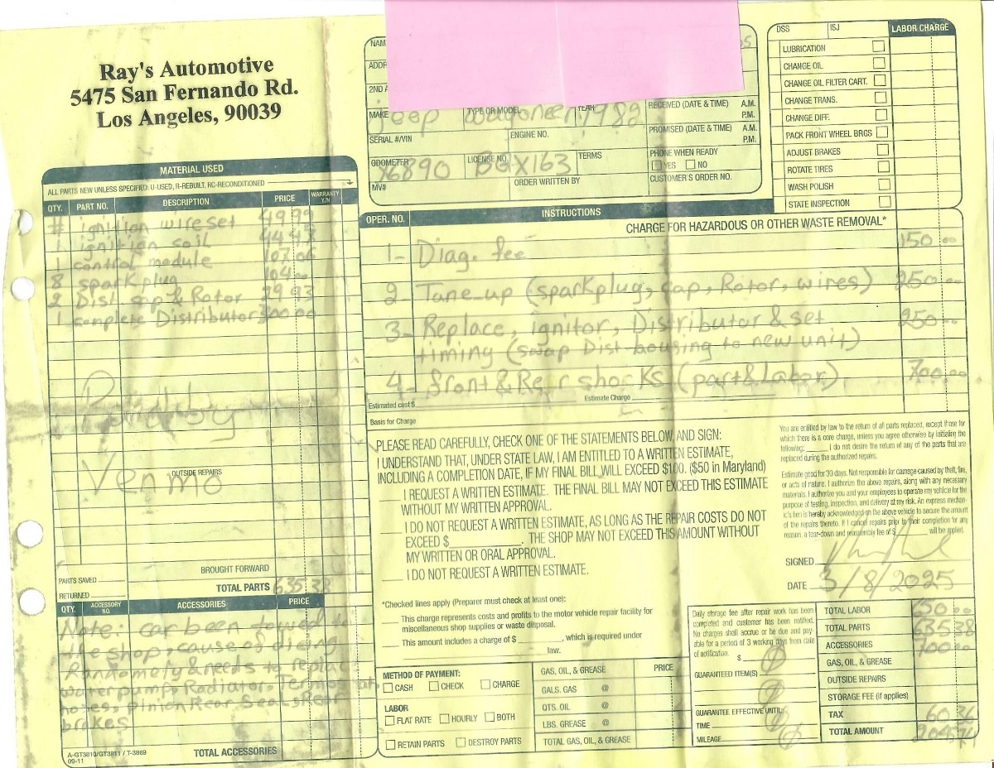 Ray's Automotive
5475 San Fernando Rd.
Los Angeles, 90039
MATERIAL USED
ALL PARTS NEW UNLESS SPECIFIED: U-USED, R-REBUILT, RC-RECONDITIONED
QTY. PART NO. DESCRIPTION PRICE WARRANTY Y/N
ignition wire set 49.99
1 ignition soil
1 control module 107.06
8 spark plug 104.00
2 Dist. sap & Rotor
1 complete Distributor
Paid by
OUTSIDE REPAIRS
Venmo
BROUGHT FORWARD
PARTS SAVED
RETURNED
TOTAL PARTS 635.38
QTY. ACCESSORY NO. ACCESSORIES PRICE
Note: car been towed to
the shop, cause of dieing
Randomely & needs to replace
water pump, Radiator,
hoses, pinion Rear Seal, Rear
brakes
TOTAL ACCESSORIES
09-11
NAM
ADDR
2ND A
MAKE TYPE OR MODEL YEAR
Jeep Wagoneer 1982
RECEIVED (DATE & TIME) A.M.
P.M.
SERIAL #/VIN ENGINE NO.
PROMISED (DATE & TIME) A.M.
P.M.
ODOMETER LICENSE NO. TERMS
X6890 BGX163
PHONE WHEN READY
YES NO
MV# ORDER WRITTEN BY CUSTOMER'S ORDER NO.
DSS ISJ LABOR CHARGE
LUBRICATION
CHANGE OIL
CHANGE OIL FILTER CART.
CHANGE TRANS.
CHANGE DIFF.
PACK FRONT WHEEL BRGS
ADJUST BRAKES
ROTATE TIRES
WASH POLISH
STATE INSPECTION
OPER. NO. INSTRUCTIONS
CHARGE FOR HAZARDOUS OR OTHER WASTE REMOVAL*
1- Diag. fee 150.00
2- Tune-up (sparkplug, cap, Rotor, wires) 250.00
3- Replace, ignitor, Distributor & set 250.00
timing (swap Dist housing to new unit)
4- front & Rear shocks (part & Labor) 700.00
Estimated cost $ Estimate Charge
Basis for Charge
PLEASE READ CAREFULLY, CHECK ONE OF THE STATEMENTS BELOW, AND SIGN:
I UNDERSTAND THAT, UNDER STATE LAW, I AM ENTITLED TO A WRITTEN ESTIMATE,
INCLUDING A COMPLETION DATE, IF MY FINAL BILL WILL EXCEED $100. ($50 in Maryland)
I REQUEST A WRITTEN ESTIMATE. THE FINAL BILL MAY NOT EXCEED THIS ESTIMATE
WITHOUT MY WRITTEN APPROVAL.
I DO NOT REQUEST A WRITTEN ESTIMATE, AS LONG AS THE REPAIR COSTS DO NOT
EXCEED $ . THE SHOP MAY NOT EXCEED THIS AMOUNT WITHOUT
MY WRITTEN OR ORAL APPROVAL.
I DO NOT REQUEST A WRITTEN ESTIMATE.
You are entitled by law to the return of all parts replaced, except those for
which there is a core charge, unless you agree otherwise by initialing the
following: I do not desire the return of any of the parts that are
replaced during the authorized repairs.
Estimate good for 30 days. Not responsible for damage caused by theft, fire,
or acts of nature. I authorize the above repairs, along with any necessary
materials. I authorize you and your employees to operate my vehicle for the
purpose of testing, inspection, and delivery at my risk. An express mechan-
ic's lien is hereby acknowledged on the above vehicle to secure the amount
of the repairs thereto. If I cancel repairs prior to their completion for any
reason, a tear-down and reassembly fee of $ will be applied.
SIGNED
DATE 3/8/2025
*Checked lines apply (Preparer must check at least one):
This charge represents costs and profits to the motor vehicle repair facility for
miscellaneous shop supplies or waste disposal.
This amount includes a charge of $ , which is required under
law.
METHOD OF PAYMENT:
CASH CHECK CHARGE
LABOR
FLAT RATE HOURLY BOTH
RETAIN PARTS DESTROY PARTS
GAS, OIL, & GREASE PRICE
GALS. GAS @
QTS. OIL @
LBS. GREASE @
TOTAL GAS, OIL, & GREASE
Daily storage fee after repair work has been
completed and customer has been notified.
No charges shall accrue or be due and pay-
able for a period of 3 working days from date
of notification. $
GUARANTEED ITEM(S)
GUARANTEE EFFECTIVE UNTIL:
TIME
MILEAGE
TOTAL LABOR 650.00
TOTAL PARTS 635.38
ACCESSORIES 700.00
GAS, OIL, & GREASE
OUTSIDE REPAIRS
STORAGE FEE (if applies)
TAX 60.36
TOTAL AMOUNT